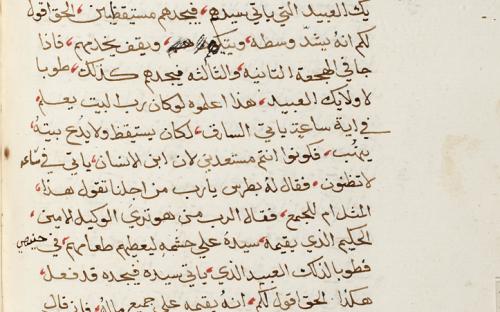 يك العبيد التي ياتي سيدهم فيجدهم مستيقظين الحق اقول
لكم انه يشد وسطه ويتكيهم ويقف يخدمهم فاذا
جا في الهجعة الثانية والثالثه فيجدهم كذلك طوبا
لاولايك العبيد هذا اعلموه لو كان رب البيت يعلم
في اية ساعة ياتي السارق لكان يستيقظ ولا يدع بيته
ينهب فكونوا انتم مستعدين لان ابن الانسان ياتي في ساعه
لا تظنون فقال له بطرس يارب من اجلنا تقول هذا
المثل ام للجميع فقال الرب من هو تري الوكيل الامين
الحكيم الذي يقيمه سيده علي حشمه ليعطيهم طعامهم في حينه
فطوبا لذلك العبيد الذي ياتي سيده فيجده قد فعل
هكذا الحق اقول لكم انه يقيمه علي جميع ماله فان قال